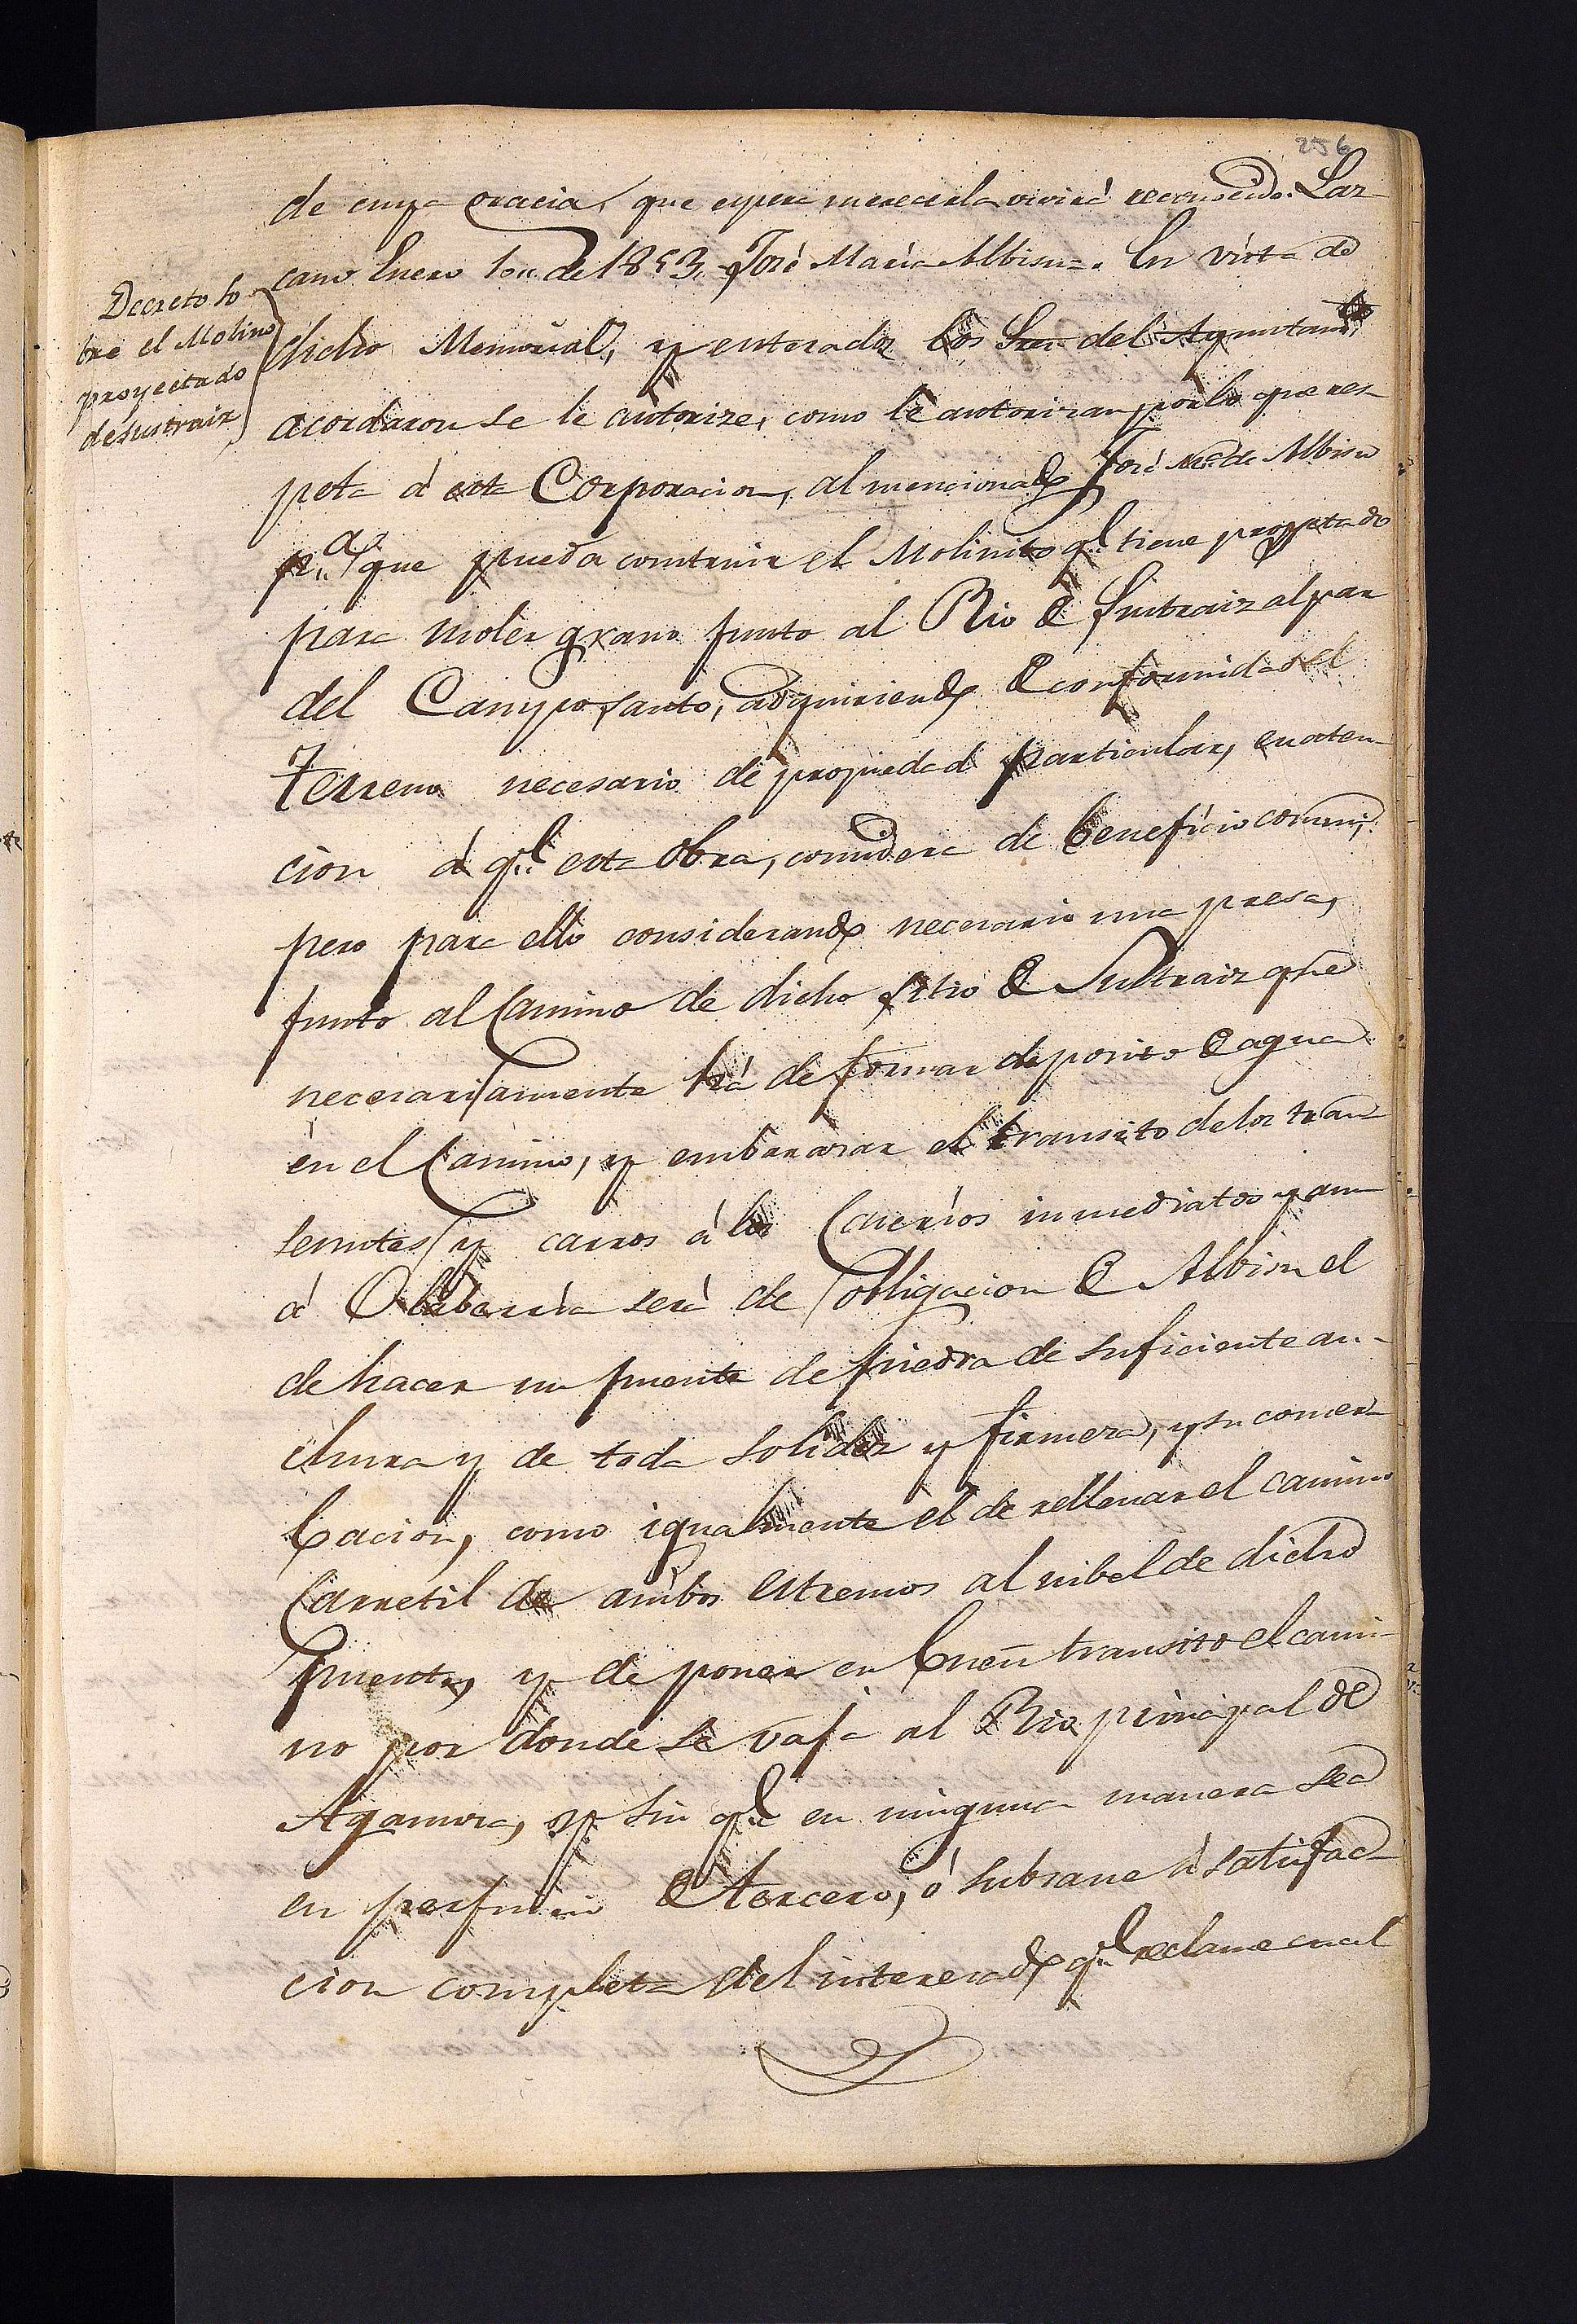 256
de cuya gracia, que espera merecerla vivirá reconocido. Laz-
cano Enero 1o,, de 1853. José María Albisu. En vista de
Decreto so-
bre el Molino
proyectado
de sustraiz
dicho Memorial, y enterados los Sres del Ayuntamto,
acordaron se le autorize, como le autorizan por lo que res-
peta á esta Corporacion, al mencionado José Ma de Albisu
pa que pueda construir el Molinito ql tiene proyetado
para moler grano junto al Rio de Sustraiz al par
del Campo santo, adquiriendo de conformidad el
Terreno necesario de propiedad particular, en aten-
cion á ql esta obra, considera de beneficio comun;
pero para ello considerando necesario una presa,
junto al Camino de dicho sitio de Sustraiz que
necesariamente há de formar deposito de agua
en el Camino, y embarazar el transito de los tran-
seuntes y carros á los Caserios inmediatos y aun
á Olaberria será de obligacion de Albisu el
de hacer un puente de piedra de suficiente an-
chura y de toda solidez y firmeza, y su conser-
bacion, como igualmente el de rellenar el camino
Carretil de ambos estremos al nibel de dicho
puente, y de poner en buen transito el cami-
no por donde se vaja al Rio principal de
Agaunza, y sin ql en ninguna manera sea
en perjuicio de tercero, ó subsane á satisfac-
cion completa del interesado ql reclame cual